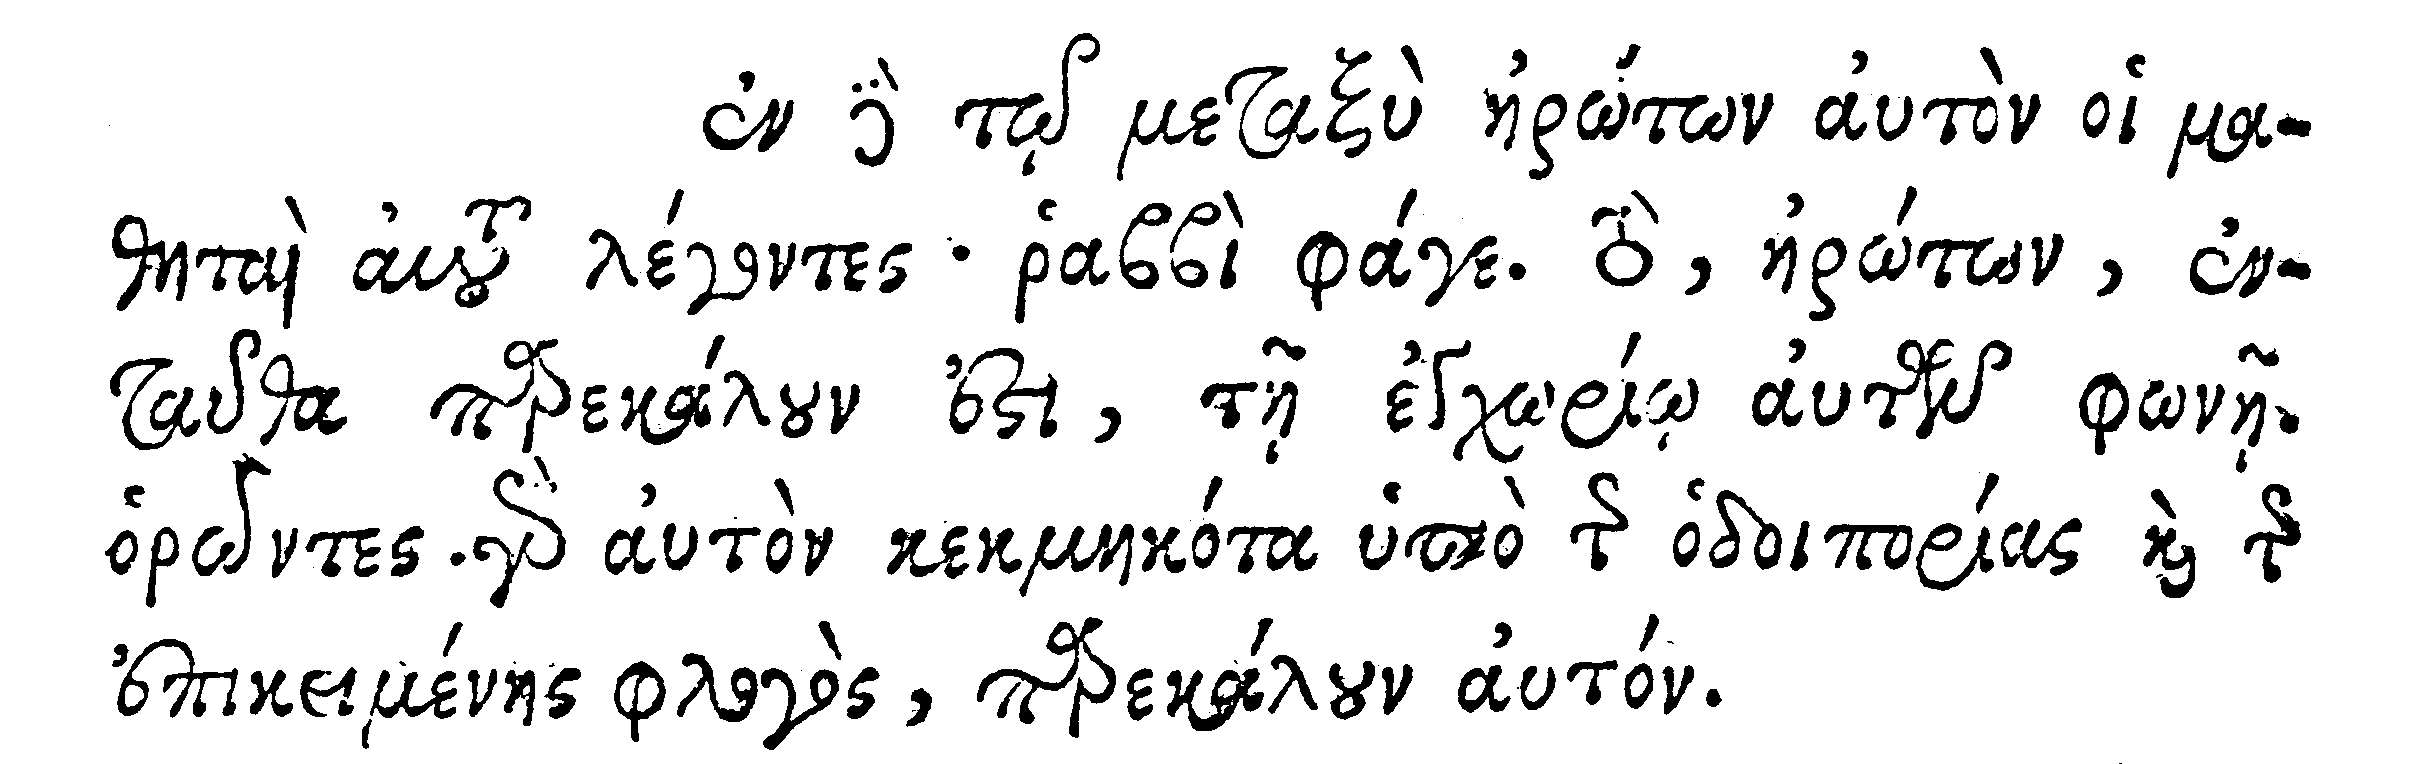 ἐν δὲ τῷ μεταξὺ ἠρώτων ἀυτὸν οἱ μα-
θηταὶ ἀυτοῦ λέγοντες · ῥαββὶ φάγε. τὸ, ἠρώτων, ἐν-
ταῦθα παρεκάλουν ἐστι, τῇ ἐγχωρίῳ ἀυτῶν φωνῇ.
ὁρῶντες · γὰρ ἀυτὸν κεκμηκότα ὑπὸ τῆς ὁδοιπορίας καὶ τῆς
ἐπικειμένης φλογὸς, παρεκάλουν ἀυτόν.